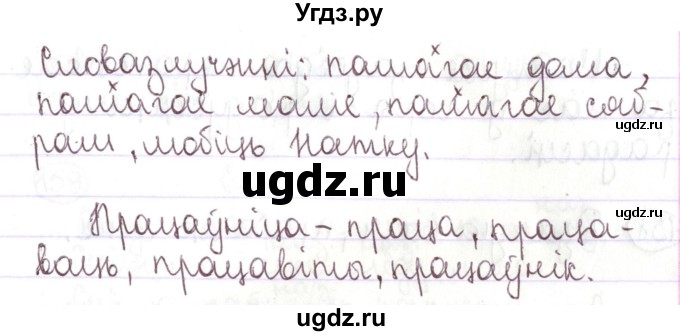 Угдз.ру
Словазлучэнні: памагае дома,
памагае маме, памагае сяб-
рам, любіць Натку.
Угдз.ру
ugdz.ru
Працаўніца - праца, праца-
ваць, працавіты, працаўнік.
ugdz.ru
ugdz.ru